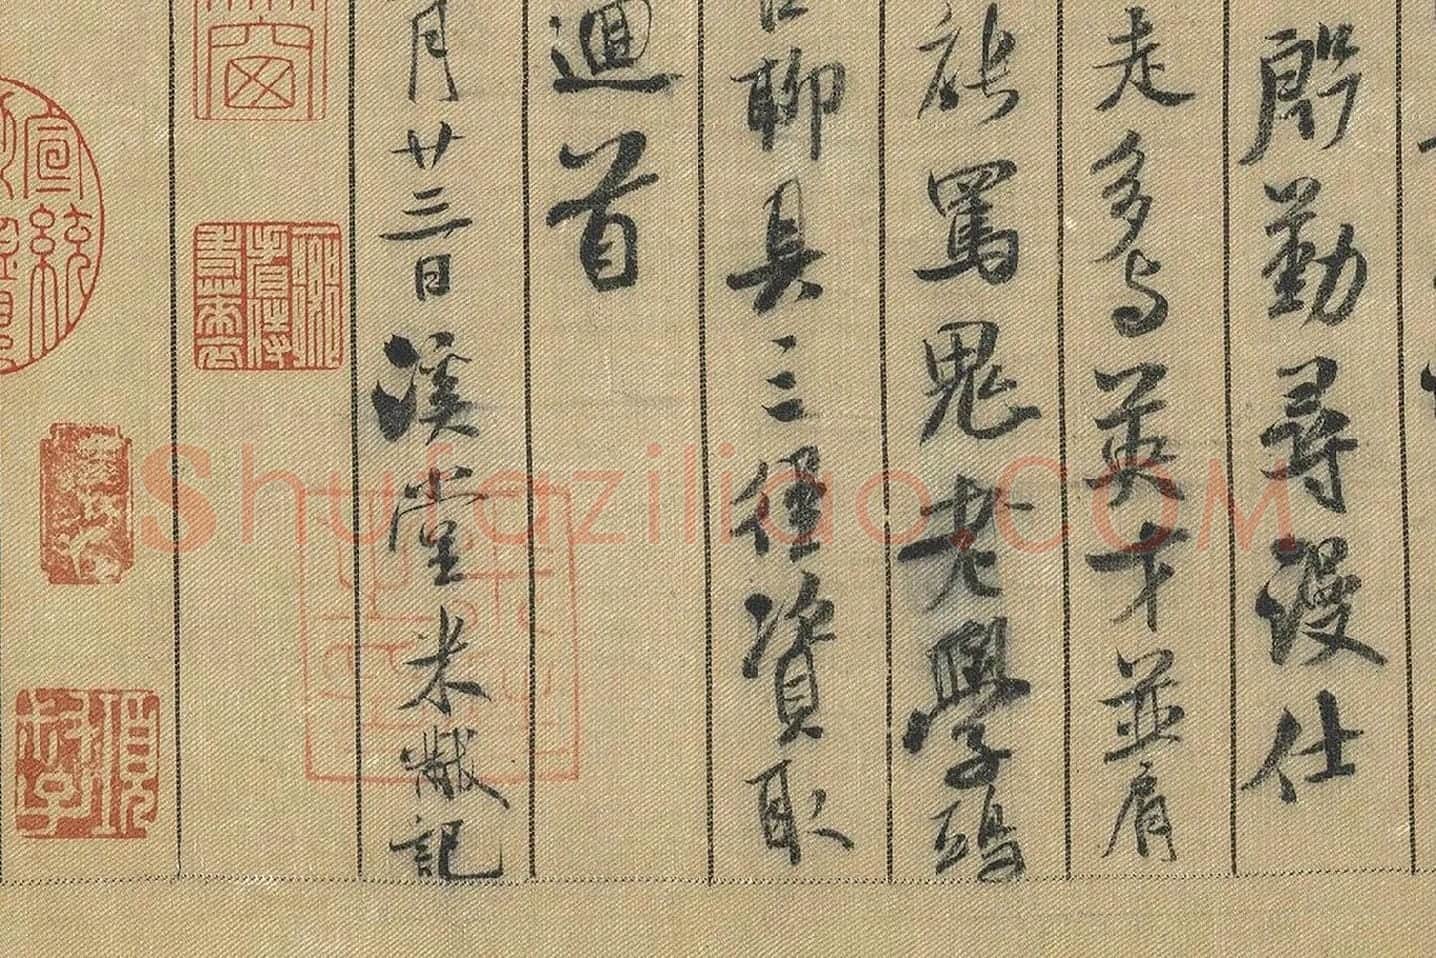 殷勤尋漫仕
走多与英才並肩
能罵鬼老學鴟
聊具三徑資取
迴首
月廿三日溪堂米黻記
宣統
Shufaziliao.COM